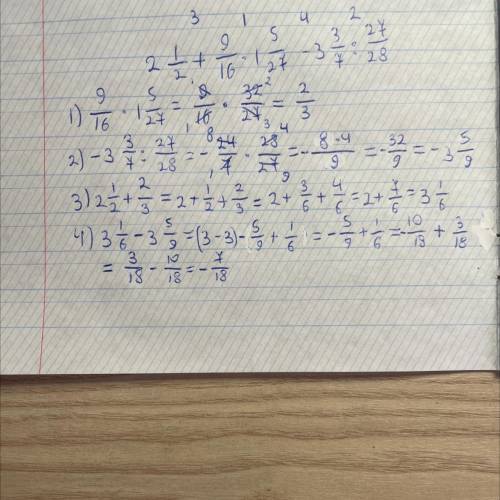 3 1 4 2
2 1/2 + 9/16 · 1 5/27 - 3 3/7 : 27/28
1) 9/16 · 1 5/27 = 9/16 · 32/27 = 2/3
2) -3 3/7 : 27/28 = - 24/7 · 28/27 = - 8·4/9 = - 32/9 = -3 5/9
3) 2 1/2 + 2/3 = 2 + 1/2 + 2/3 = 2 + 3/6 + 4/6 = 2 + 7/6 = 3 1/6
4) 3 1/6 - 3 5/9 = (3-3) - 5/9 + 1/6 = - 5/9 + 1/6 = - 10/18 + 3/18
= 3/18 - 10/18 = - 7/18